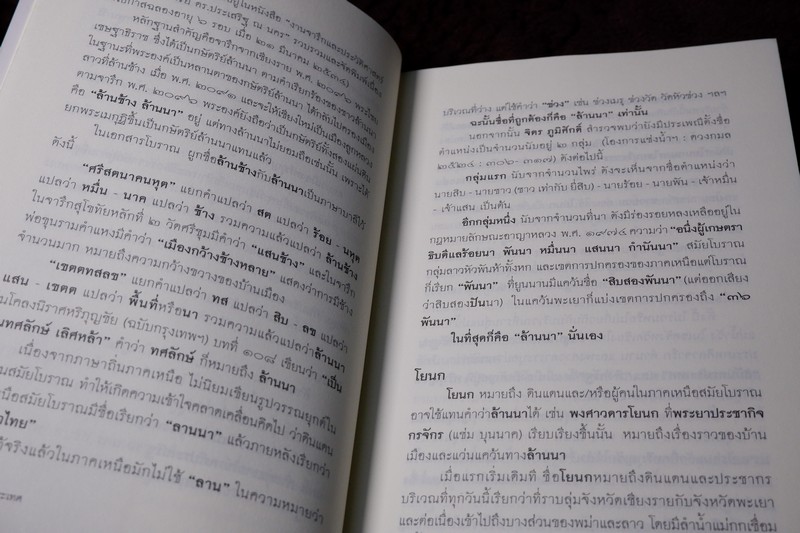 อยู่ในหนังสือ "งานจารึกและประวัติศาสตร์
ดร.ประเสริฐ ณ นคร" รวบรวมและจัดพิมพ์เนื่อง
โอกาสฉลองอายุ ๖ รอบ เมื่อ ๒๑ มีนาคม ๒๕๓๔)
หลักฐานสำคัญคือจารึกจากเชียงราย พ.ศ. ๒๐๙๖ พระไชย
เชษฐาธิราช ซึ่งได้เป็นกษัตริย์ล้านนา ตามคำเรียกร้องของชาวล้านนา
ในฐานะที่พระองค์เป็นหลานตาของกษัตริย์ล้านนา ได้กลับไปครองเมือง
ลาวที่ล้านช้าง เมื่อ พ.ศ. ๒๐๙๑ และจะให้เชียงใหม่เป็นเมืองลูกหลวง
ตามจารึก พ.ศ. ๒๐๙๖ พระองค์ยังถือว่าเป็นกษัตริย์ทั้งสองแผ่นดิน
คือ "ล้านช้าง ล้านนา" อยู่ แต่ทางล้านนาไม่ยอมถือเช่นนั้น เพราะได้
ยกพระเมกุฏิขึ้นเป็นกษัตริย์ล้านนาแทนแล้ว
ในเอกสารโบราณ ผูกชื่อล้านช้างกับล้านนาเป็นภาษาบาลีไว้
ดังนี้
"ศรีสตนาคนหุต" แยกคำแปลว่า สต แปลว่า ร้อย - นหุต
แปลว่า หมื่น - นาค แปลว่า ช้าง รวมความแล้วแปลว่า ล้านช้าง
ในจารึกสุโขทัยหลักที่ ๒ วัดศรีชุมมีคำว่า "แสนช้าง" และในจารึก
พ่อขุนรามคำแหงมีคำว่า "เมืองกว้างช้างหลาย" แสดงว่าการมีช้าง
จำนวนมาก หมายถึงความกว้างขวางของบ้านเมือง
"เขตตทสลข" แยกคำแปลว่า ทส แปลว่า สิบ - ลข แปลว่า
แสน - เขตต แปลว่า พื้นที่หรือนา รวมความแล้วแปลว่าล้านนา
ในโคลงนิราศหริภุญชัย (ฉบับกรุงเทพฯ) บทที่ ๑๐๘ เขียนว่า "เป็น
ทศลักษ์ เลิศหล้า" คำว่า ทศลักษ์ ก็หมายถึง ล้านนา
เนื่องจากภาษาถิ่นภาคเหนือ ไม่นิยมเขียนรูปวรรณยุกต์ใน
สมัยโบราณ ทำให้เกิดความเข้าใจคลาดเคลื่อนคิดไป ว่าดินแดน
เหนือสมัยโบราณมีชื่อเรียกว่า "ลานนา" แล้วภายหลังเรียกว่า
ไทย"
จริงแล้วในภาคเหนือมักไม่ใช้ "ลาน" ในความหมายว่า
ประเทศ
บริเวณที่ว่าง แต่ใช้คำว่า "ข่วง" เช่น ข่วงเมรุ ข่วงวัด วัดหัวข่วง ฯลฯ
ฉะนั้นชื่อที่ถูกต้องก็คือ "ล้านนา" เท่านั้น
นอกจากนั้น จิตร ภูมิศักดิ์ สำรวจพบว่ายังมีประเพณีตั้งชื่อ
ตำแหน่งเป็นจำนวนนับอยู่ ๒ กลุ่ม. (โองการแช่งน้ำฯ : ดวงกมล
๒๕๒๔ : ๓๐๖-๓๑๗) ดังต่อไปนี้
กลุ่มแรก นับจากจำนวนไพร่ ดังจะเห็นจากชื่อตำแหน่งว่า
-นายสิบ - นายซาว (ซาว เท่ากับ ยี่สิบ) -นายร้อย - นายพัน - เจ้าหมื่น
- เจ้าแสน เป็นต้น
อีกกลุ่มหนึ่ง นับจากจำนวนที่นา ดังมีร่องรอยหลงเหลืออยู่ใน
กฎหมายลักษณะอาญาหลวง พ.ศ. ๑๙๗๔ ความว่า "อนึ่งผู้เกษตรา
ธิบดีแลร้อยนา พันนา หมื่นนา แสนนา กำนันนา" สมัยโบราณ
กลุ่มลาวหัวพันห้าทั้งหก และเขตการปกครองของภาคเหนือแต่โบราณ
ก็เรียก "พันนา" ที่ยูนนานมีแคว้นชื่อ "สิบสองพันนา" (แต่ออกเสียง
ว่าสิบสองปันนา) ในแคว้นพะเยาที่แบ่งเขตการปกครองถึง "๓๖
พันนา"
ในที่สุดก็คือ "ล้านนา" นั่นเอง
โยนก
โยนก หมายถึง ดินแดนและ/หรือผู้คนในภาคเหนือสมัยโบราณ
อาจใช้แทนคำว่าล้านนาได้ เช่น พงศาวดารโยนก ที่พระยาประชากิจ
กรจักร (แช่ม บุนนาค) เรียบเรียงขึ้นนั้น หมายถึงเรื่องราวของบ้าน
เมืองและแว่นแคว้นทางล้านนา
เมื่อแรกเริ่มเดิมที ชื่อโยนกหมายถึงดินแดนและประชากร
บริเวณที่ทุกวันนี้เรียกว่าที่ราบลุ่มจังหวัดเชียงรายกับจังหวัดพะเยา
และต่อเนื่องเข้าไปถึงบางส่วนของพม่าและลาว โดยมีลำน้ำแม่กกเชื่อม